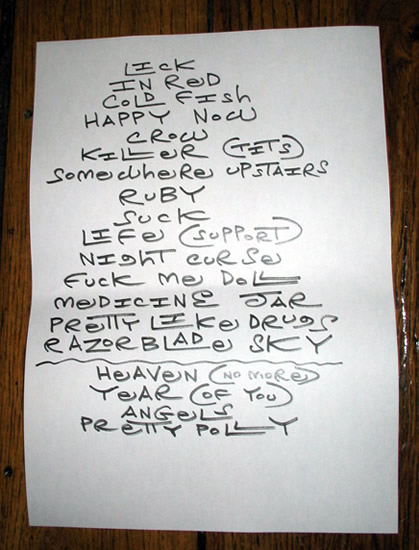 LICK
IN RED
COLD FISH
HAPPY NOW
CROW
KILLER (TITS)
SOMEWHERE UPSTAIRS
RUBY
SUCK
LIFE (SUPPORT)
NIGHT CURSE
FUCK ME DOLL
MEDICINE JAR
PRETTY LIKE DRUGS
RAZORBLADE SKY
HEAVEN (NO MORE)
YEAR (OF YOU)
ANGELS
PRETTY POLLY